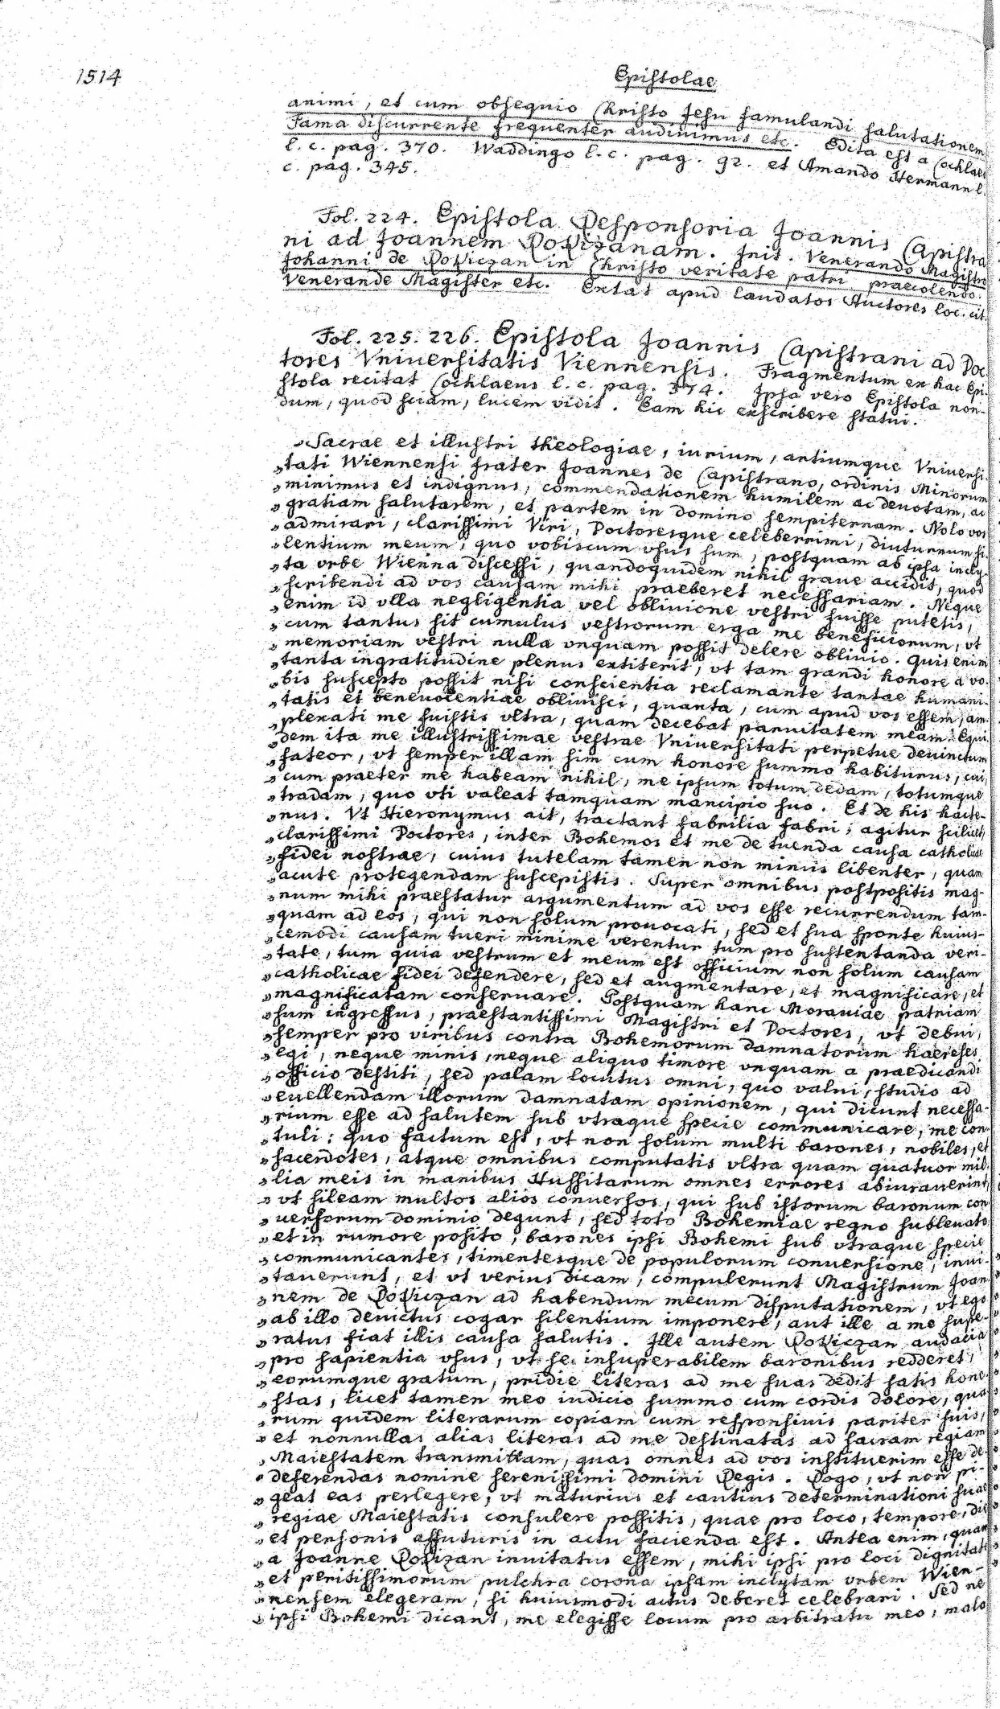 1514
Epistolae
animi, et cum obsequio Christo Jesu famulandi salutationem
Fama discurrente frequenter audivimus etc. Edita est a Cochlaeo
l. c. pag. 370. Waddingo l. c. pag. 92. et Amando Hermann l.
c. pag. 345.
Fol. 224. Epistola Responsoria Joannis Capistra
ni ad Joannem Rokizanam. Init. Venerando Magistro
Johanni de Rokiczan in Christo veritate patri praecolendo.
Venerande Magister etc. Extat apud laudatos Auctores loc. cit.
Fol. 225. 226. Epistola Joannis Capistrani ad Doc
tores Vniuersitatis Viennensis. Fragmentum ex hac Epi-
stola recitat Cochlaeus l. c. pag. 374. Ipsa vero Epistola non-
dum, quod sciam, lucem vidit. Eam hic exscribere statui.
„Sacrae et illustri theologiae, iurium, artiumque Vniuersi
„tati Wiennensi frater Joannes de Capistrano, ordinis Minorum
„minimus et indignus, commendationem humilem ac deuotam, ac
„gratiam salutarem, et partem in domino sempiternam. Nolo vos
„admirari, clarissimi Viri, Doctoresque celeberrimi, diuturnum si
„lentium meum, quo vobiscum vsus sum, postquam ab ipsa incly
„ta vrbe Wienna discessi, quandoquidem nihil graue accidit, quod
„scribendi ad vos causam mihi praeberet necessariam. Neque
„enim id vlla negligentia vel obliuione vestri fuisse putetis,
„cum tantus sit cumulus vestrorum erga me beneficiorum, vt
„memoriam vestri nulla vnquam possit delere obliuio. Quis enim
„tanta ingratitudine plenus extiterit, vt tam grandi honore a vo
„bis suscepto possit nisi conscientia reclamante tantae humani
„tatis et beneuolentiae obliuisci, quanta, cum apud vos essem, am
„plexati me fuistis vltra, quam decebat paruitatem meam. Equi
„dem ita me illustrissimae vestrae Vniuersitati perpetue deuinctum
„fateor, vt semper illam sim cum honore summo habiturus, cui,
„cum praeter me habeam nihil, me ipsum totum dedam, totumque
„tradam, quo vti valeat tamquam mancipio suo. Et de his hacte-
„nus. Vt Hieronymus ait, tractant fabrilia fabri; agitur scilicet,
„clarissimi Doctores, inter Bohemos et me de tuenda causa catholicae
„fidei nostrae, cuius tutelam tamen non minus libenter, quam
„acute protegendam suscepistis. Super omnibus postpositis mag-
„num mihi praestatur argumentum ad vos esse recurrendum tam-
„quam ad eos, qui non solum prouocati, sed et sua sponte huius-
„cemodi causam tueri minime verentur tum pro sustentanda veri-
„tate, tum quia vestrum et meum est officium non solum causam
„catholicae fidei defendere, sed et augmentare, et magnificare, et
„magnificatam conseruare. Postquam hanc Morauiae patriam
„sum ingressus, praestantissimi Magistri et Doctores, vt debui,
„semper pro viribus contra Bohemorum damnatorum haereses
„egi, neque minis, neque aliquo timore vnquam a praedicandi
„officio destiti, sed palam locutus omni, quo valui, studio ad
„euellendam illorum damnatam opinionem, qui dicunt necessa-
„rium esse ad salutem sub vtraque specie communicare, me con
„tuli: quo factum est, vt non solum multi barones, nobiles, et
„sacerdotes, atque omnibus computatis vltra quam quatuor mil
„lia meis in manibus Hussitarum omnes errores abiurauerint,
„vt sileam multos alios conuersos, qui sub istorum baronum con
„uersorum dominio degunt, sed toto Bohemiae regno subleuato
„et in rumore posito, barones ipsi Bohemi sub vtraque specie
„communicantes, timentesque de populorum conuersione, inui-
„tauerunt, et vt verius dicam, compulerunt Magistrum Joan
„nem de Rokiczan ad habendum mecum disputationem, vt ego
„ab illo deuictus cogar silentium imponere, aut ille a me supe-
„ratus fiat illis causa salutis. Ille autem Rokiczan audacia
„pro sapientia vsus, vt se insuperabilem baronibus redderet,
„eorumque gratum, pridie literas ad me suas dedit satis hone
„stas, licet tamen meo iudicio summo cum cordis dolore, qua
„rum quidem literarum copiam cum responsiuis pariter suis,
„et nonnullas alias literas ad me destinatas ad sacram regiam
„Maiestatem transmittam, quas omnes ad vos instituerim esse de
„deferendas nomine serenissimi domini Regis. Rogo, vt non pi-
„geat eas perlegere, vt maturius et cautius determinationi suae
„regiae Maiestatis consulere possitis, quae pro loco, tempore, die
„et personis affuturis in actu facienda est. Antea enim, quam
„a Joanne Rokizan inuitatus essem, mihi ipsi pro loci dignitate
„et peritissimorum pulchra corona ipsam inclytam vrbem Wien-
„nensem elegeram, si huiusmodi actus deberet celebrari. Sed ne
„ipsi Bohemi dicant, me elegisse locum pro arbitratu meo, malo